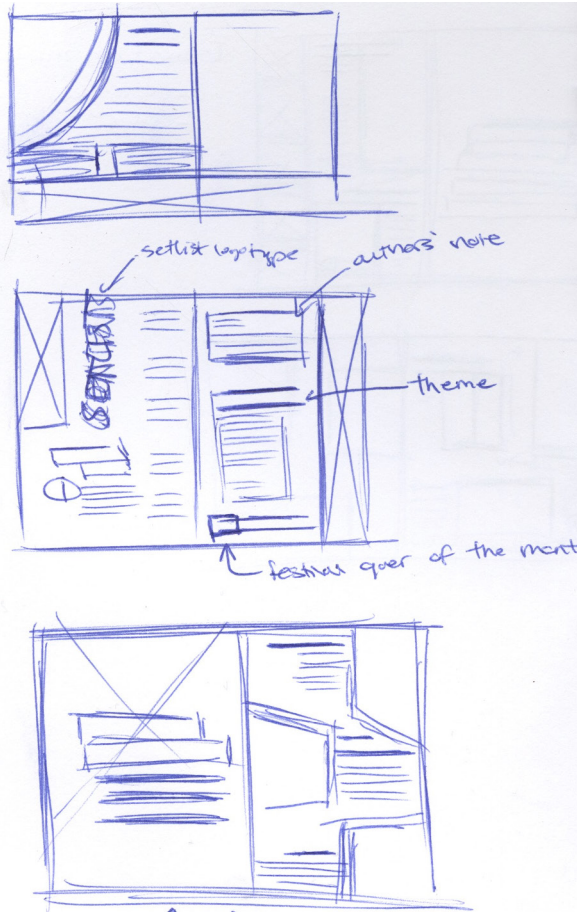 setlist logotype
authors' note
theme
festival goer of the mont